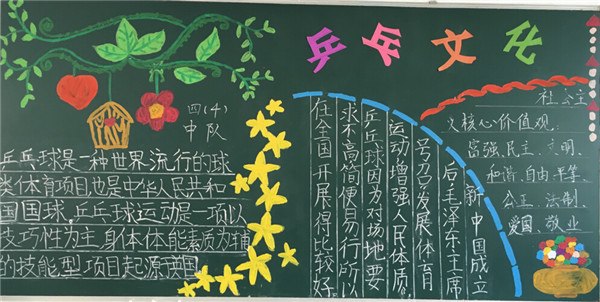 乒乓文化
四(4)
中队
乒乓球是一种世界流行的球
类体育项目也是中华人民共和
国国球.乒乓球运动是一项以
技巧性为主,身体体能素质为辅
的技能型项目起源英国
新中国成立
后毛泽东主席
号召发展体育
运动增强人民体质,
乒乓球因为对场地要
求不高简便易行所以
在全国开展得比较好。
社会主
义核心价值观:
富强、民主、文明
和谐、自由、平等、
公正、法制、
爱国、敬业